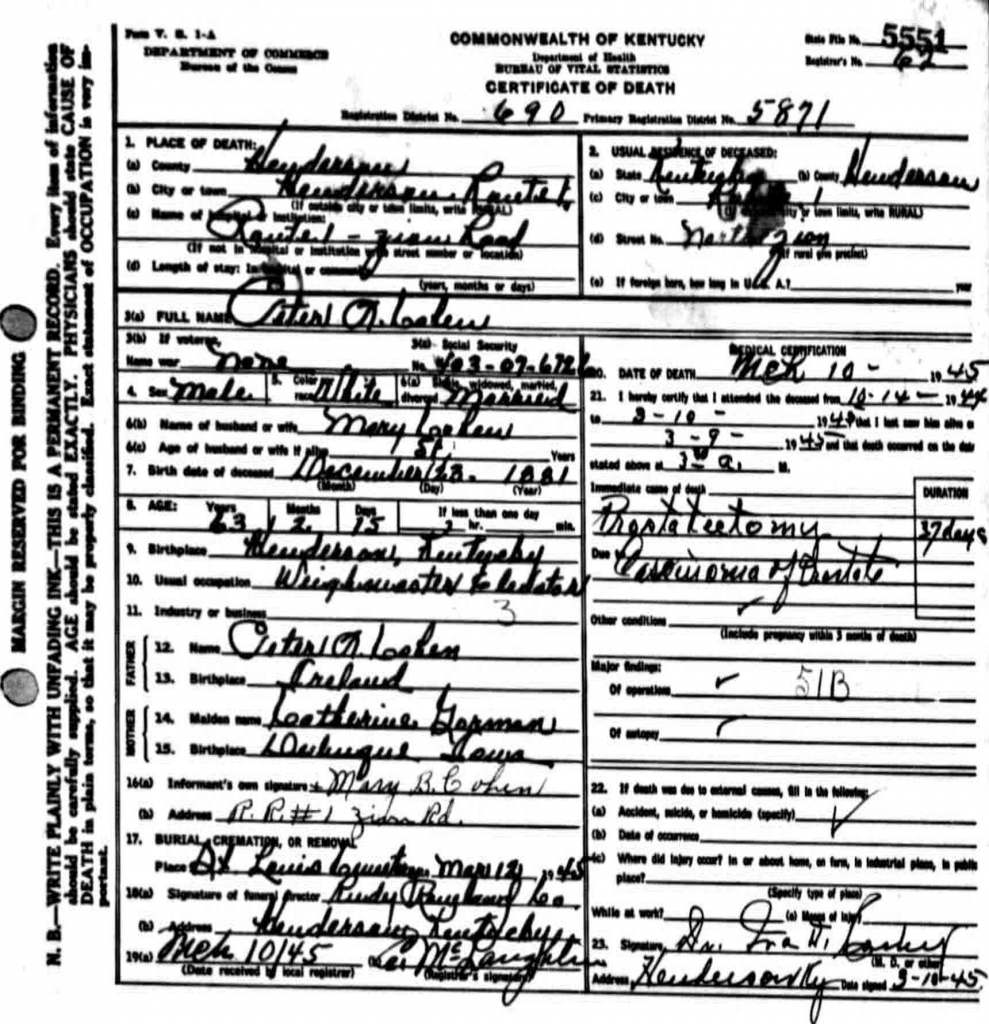 Form V. S. 1-A
DEPARTMENT OF COMMERCE
Bureau of the Census
COMMONWEALTH OF KENTUCKY
Department of Health
BUREAU OF VITAL STATISTICS
CERTIFICATE OF DEATH
State File No. 5551
Registrar's No. 62
Registration District No. 690 Primary Registration District No. 5871
1. PLACE OF DEATH:
(a) County Henderson
(b) City or town Henderson Route 1
(If outside city or town limits, write RURAL)
(c) Name of hospital or institution:
Route 1 - Zion Road
(If not in hospital or institution give street number or location)
(d) Length of stay: In hospital or community
(years, months or days)
2. USUAL RESIDENCE OF DECEASED:
(a) State Kentucky (b) County Henderson
(c) City or town 1
(If outside city or town limits, write RURAL)
(d) Street No. North Zion
(If rural give precinct)
(e) If foreign born, how long in U.S. A.? year
3(a) FULL NAME Peter A. Cohen
3(b) If veteran, 3(c) Social Security
Name war none No. 403-07-672
4. Sex Male 5. Color race White 6(a) Single, widowed, married, divorced Married
6(b) Name of husband or wife Mary Cohen
6(c) Age of husband or wife if alive 51 Years
7. Birth date of deceased December 23. 1881
(Month) (Day) (Year)
8. AGE: Years Months Days If less than one day
63 2 15 hr. min.
9. Birthplace Henderson, Kentucky
10. Usual occupation Weighmaster
11. Industry or business 3
FATHER
12. Name Peter A. Cohen
13. Birthplace Ireland
MOTHER
14. Maiden name Catherine Gorman
15. Birthplace Dubuque Iowa
16(a) Informant's own signature Mary B. Cohen
(b) Address R. R. #1 Zion Rd.
17. BURIAL, CREMATION, OR REMOVAL
Place St Louis Cemetery Mar 12, 1945
18(a) Signature of funeral director Rudy Co.
(b) Address Henderson, Kentucky
19(a) Mch 10/45 (b) McLaughlin
(Date received by local registrar) (Registrar's signature)
MEDICAL CERTIFICATION
20. DATE OF DEATH Mch 10 - 1945
21. I hereby certify that I attended the deceased from 10-14 - 1944
to 3-10- 1945 that I last saw him alive on
3-9- 1945 and that death occurred on the date
stated above at 3 a. M.
Immediate cause of death DURATION
Prostatectomy 37 days
Due to
Carcinoma of Prostate
Other conditions
(Include pregnancy within 3 months of death)
Major findings:
Of operations 51B
Of autopsy
22. If death was due to external causes, fill in the following:
(a) Accident, suicide, or homicide (specify)
(b) Date of occurrence
(c) Where did injury occur? In or about home, on farm, in industrial place, in public
place?
(Specify type of place)
While at work? (e) Means of injury
23. Signature Dr. Ira N.
(M. D. or other)
Address Henderson Ky Date signed 3-10-45
MARGIN RESERVED FOR BINDING
N. B.—WRITE PLAINLY WITH UNFADING INK—THIS IS A PERMANENT RECORD. Every item of information
should be carefully supplied. AGE should be stated EXACTLY. PHYSICIANS should state CAUSE OF
DEATH in plain terms, so that it may be properly classified. Exact statement of OCCUPATION is very im-
portant.